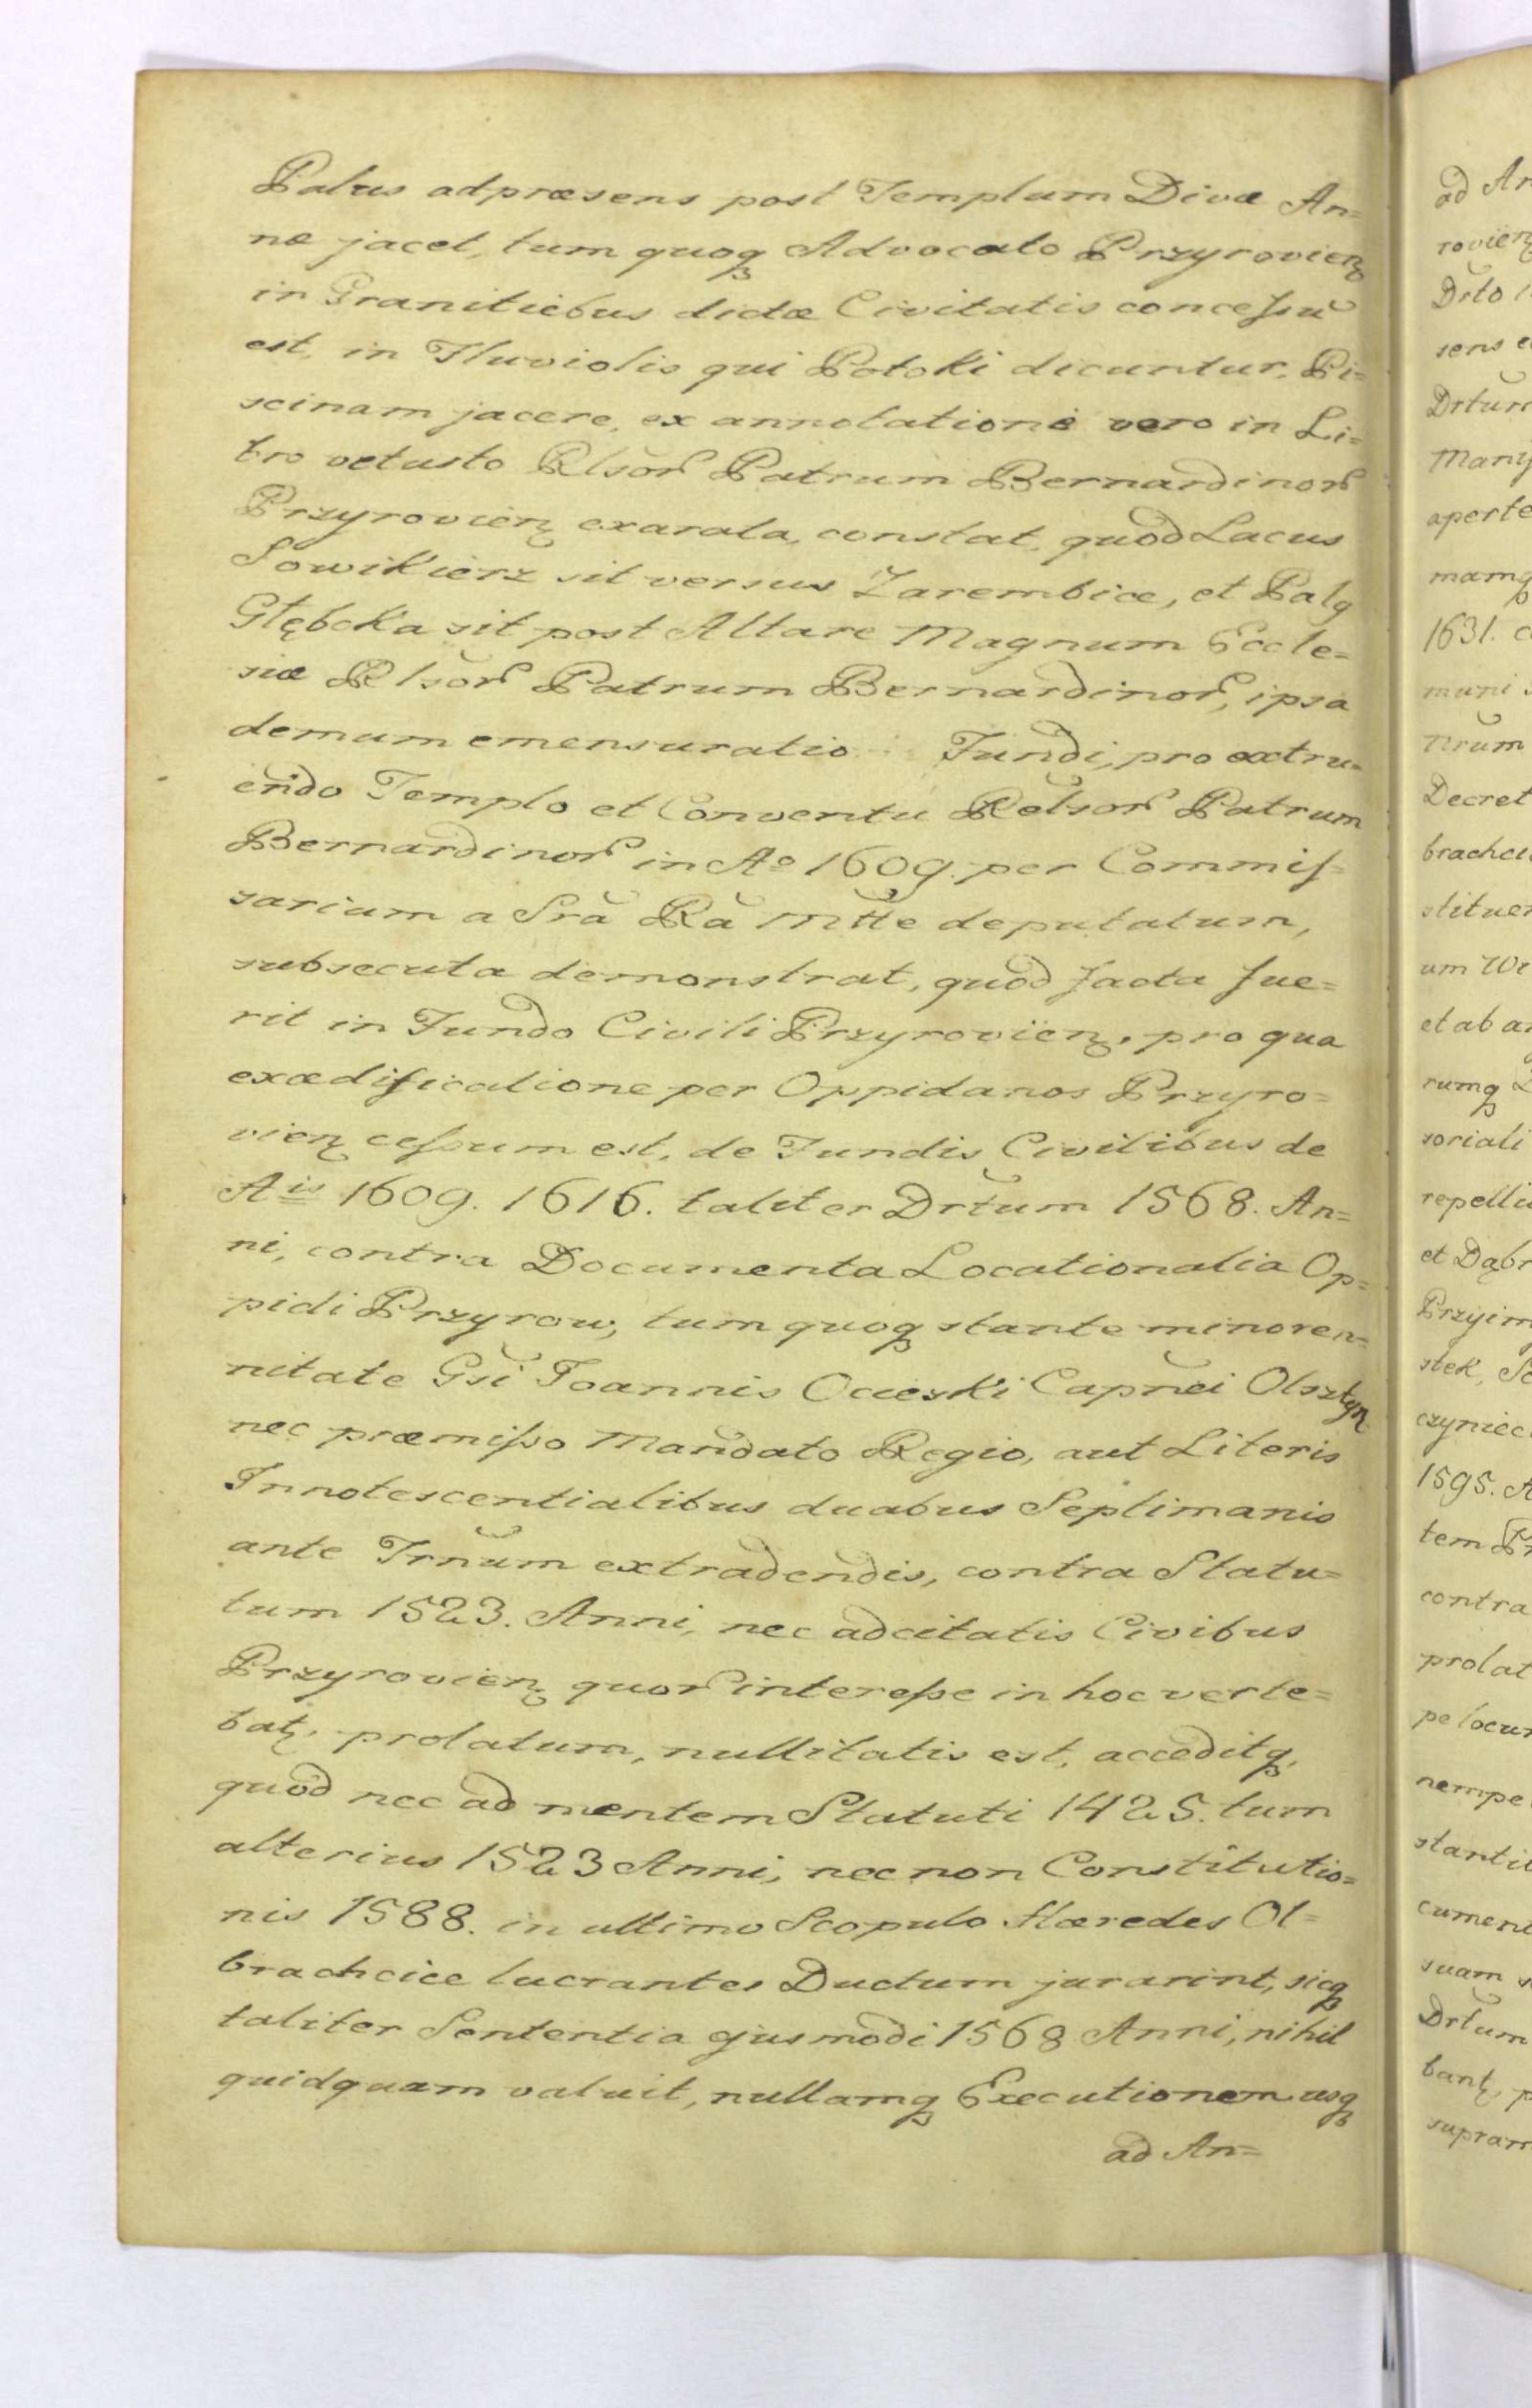 Palus ad præsens post Templum Divæ An=
næ jacet, tum quoq Advocato Przyrovien
in Granitiebus dictæ Civitatis concessũ
est, in Fluviolis qui Potoki dicuntur, Pi=
scinam jacere, ex annotatione vero in Li=
bro vetusto Rlsor Patrum Bernardinor
Przyrovien exarata, constat, quod Lacus
Sowikierz sit versus Zarembice, et Palg
Głębcka sit post Altare Magnum Eccle=
siæ Rlsor Patrum Bernardinor, ipsa
demum emensuratio Fundi, pro extru=
endo Templo et Conventu Relsor Patrum
Bernardinor in Aº 1609. per Commis=
sarium a Srã Rã Mtte deputatum,
subsecuta demonstrat, quod facta fue=
rit in Fundo Civili Przyrovien, pro qua
exædificatione per Oppidanos Przyro=
vien cessum est, de Fundis Civilibus de
Ais 1609. 1616. taliter Drtum 1568. An=
ni, contra Documenta Locationalia Op=
pidi Przyrow, tum quoq stante minoren=
nitate Gsi Joannis Ocieski Capnei Olsztyn
nec præmisso Mandato Regio, aut Literis
Innotescentialibus duabus Septimanis
ante Trnum extradendis, contra Statu=
tum 1523. Anni, nec adcitatis Civibus
Przyrovien quor interesse in hoc verte=
bat, prolatum, nullitatis est, acceditq,
quod nec ad mentem Statuti 1425. tum
alterius 1523 Anni, nec non Constitutio=
nis 1588. in ultimo Scopulo Hæredes Ol=
brachcice lucrantes Ductum jurarint, sicq
taliter Sententia ejusmodi 1568 Anni, nihil
quidquam valuit, nullamq Executionem usq
ad An=
ad An
rovien
Drto
sens
Drtum
Many
aperte
mamq
1631.
muni
Trnum
Decret
brachci
stituer
um
et ab a
rumq
soriali
repelli
et Dąbr
Przyim
stek,
czyniec
1595.
tem Pr
contra
prolat
pe locu
nempe
stanti
cument
suam
Drtum
bant,
supram